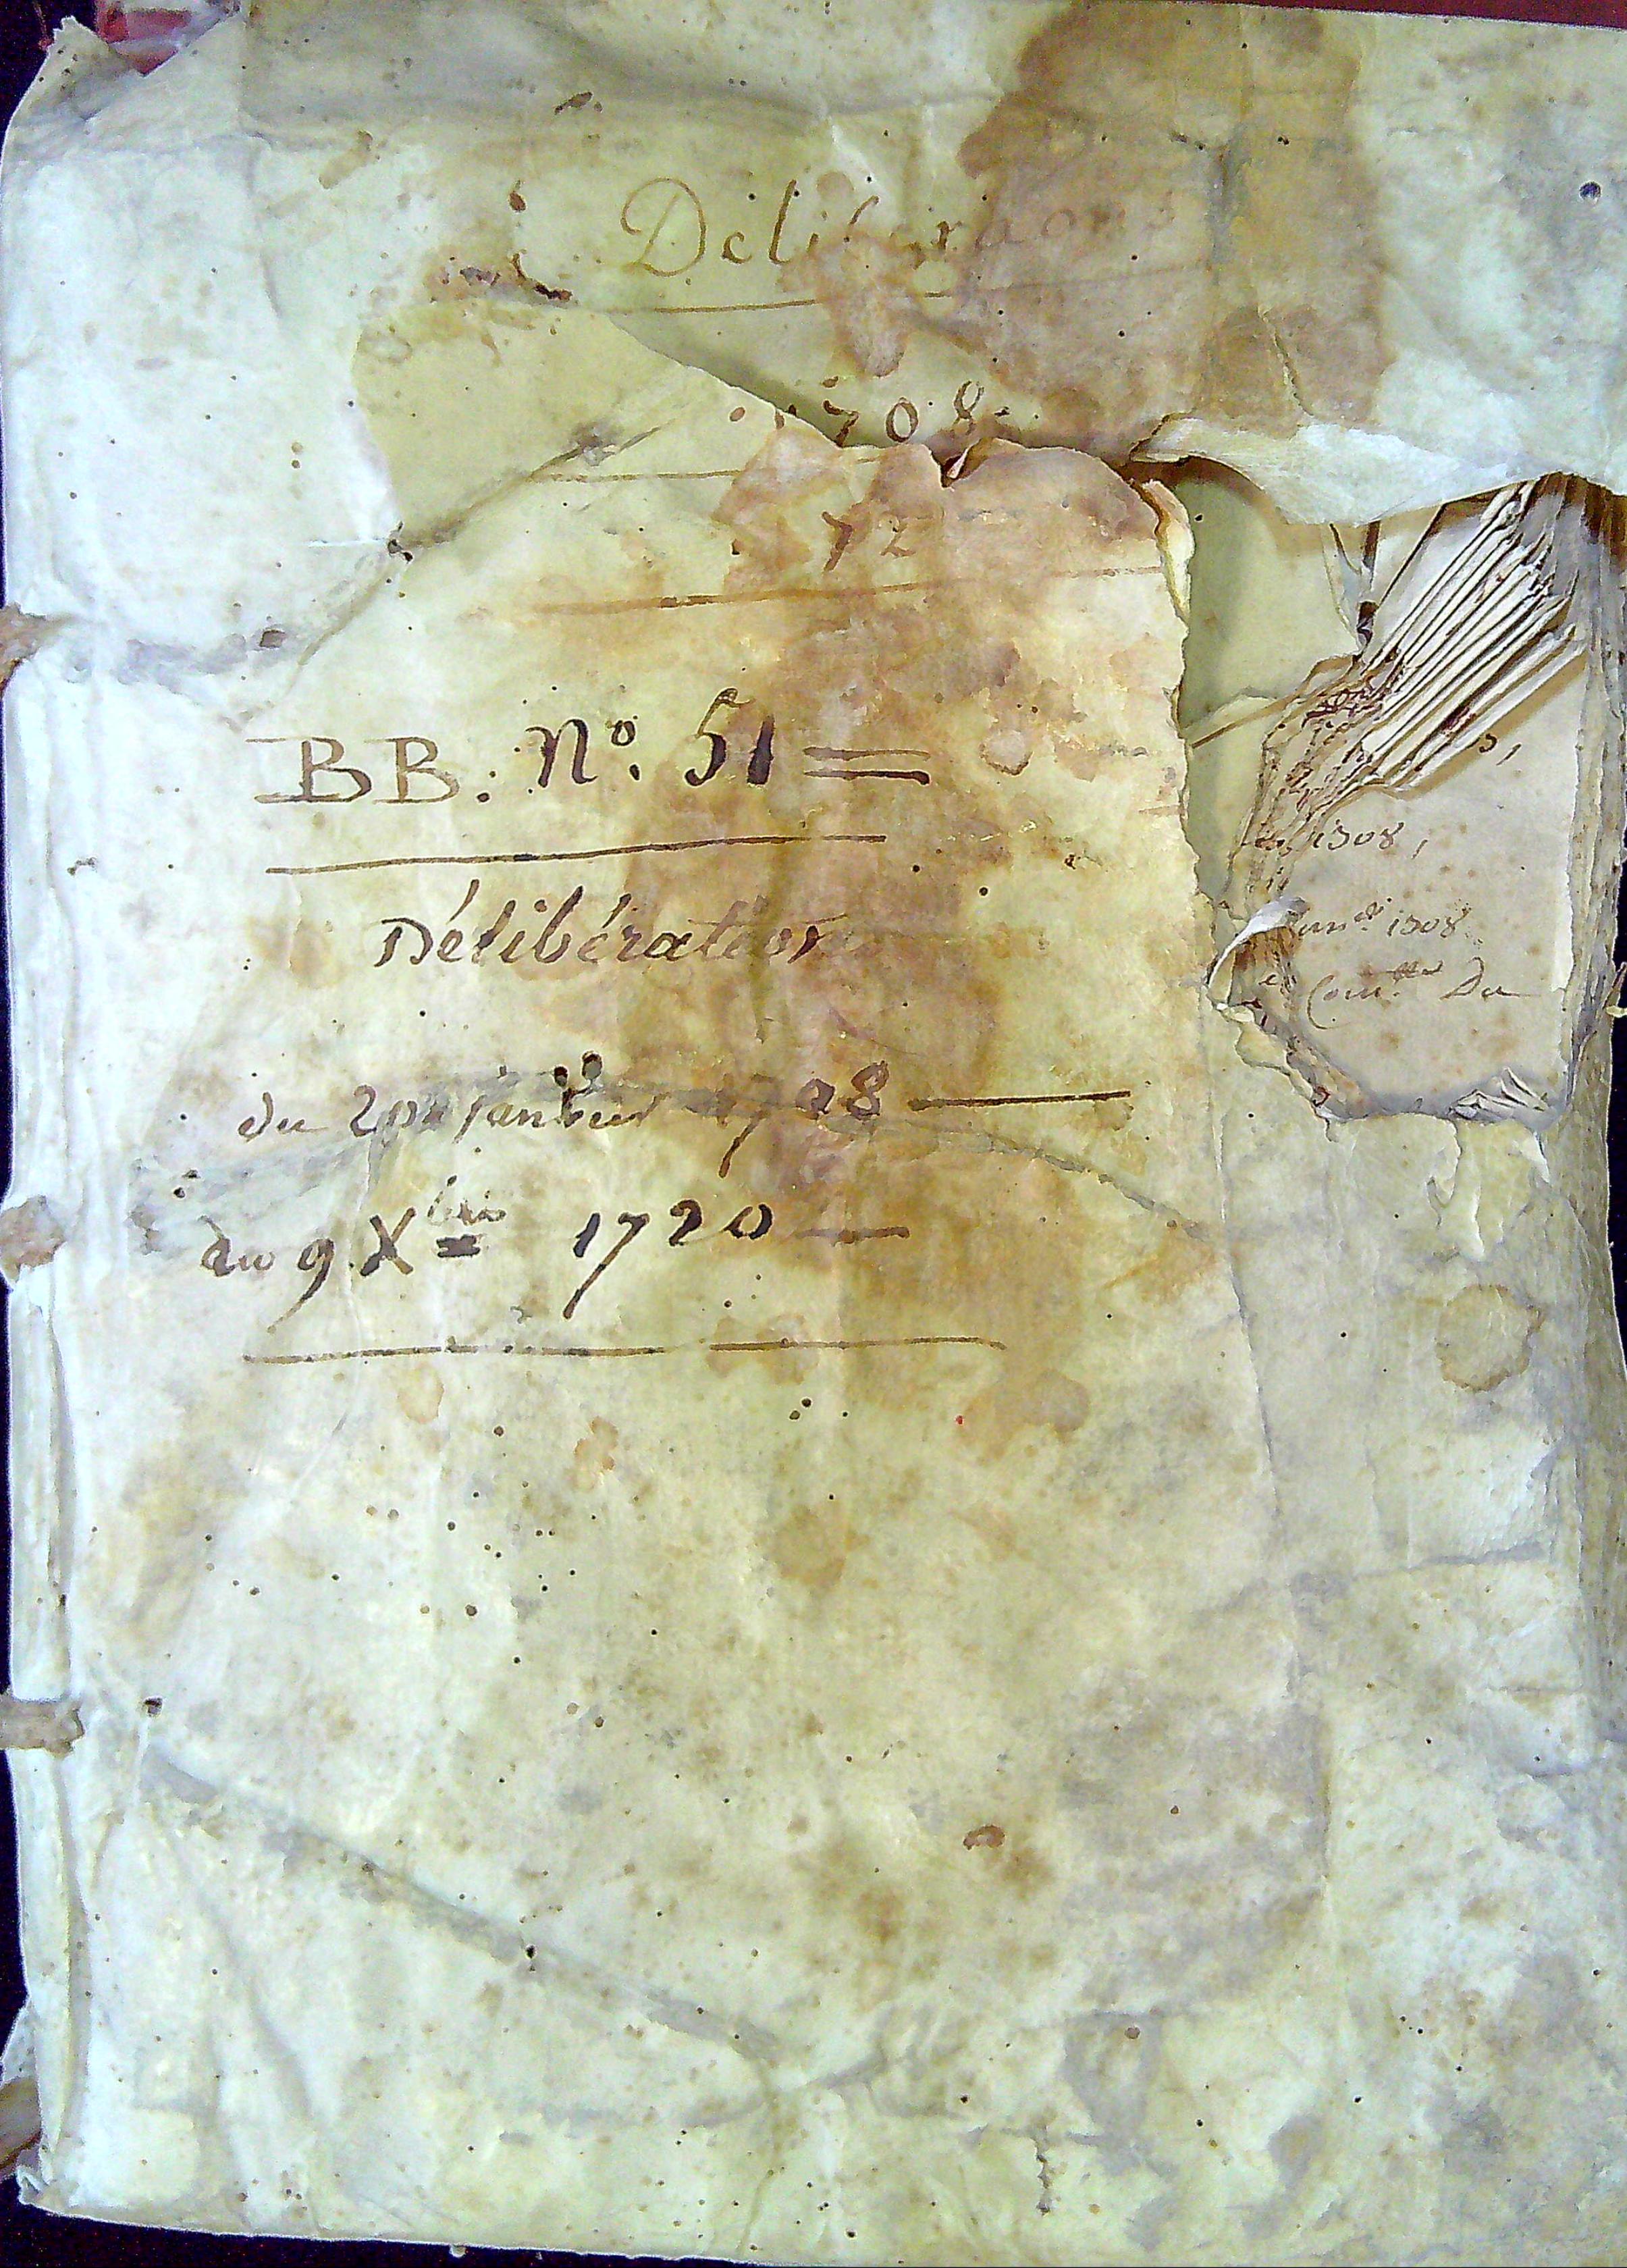 Deliberaons
1708
172
BB. N°. 51 =
Délibération
du 20 janvier 1708
au 9 Xbre 1720
1708,
1708
Du